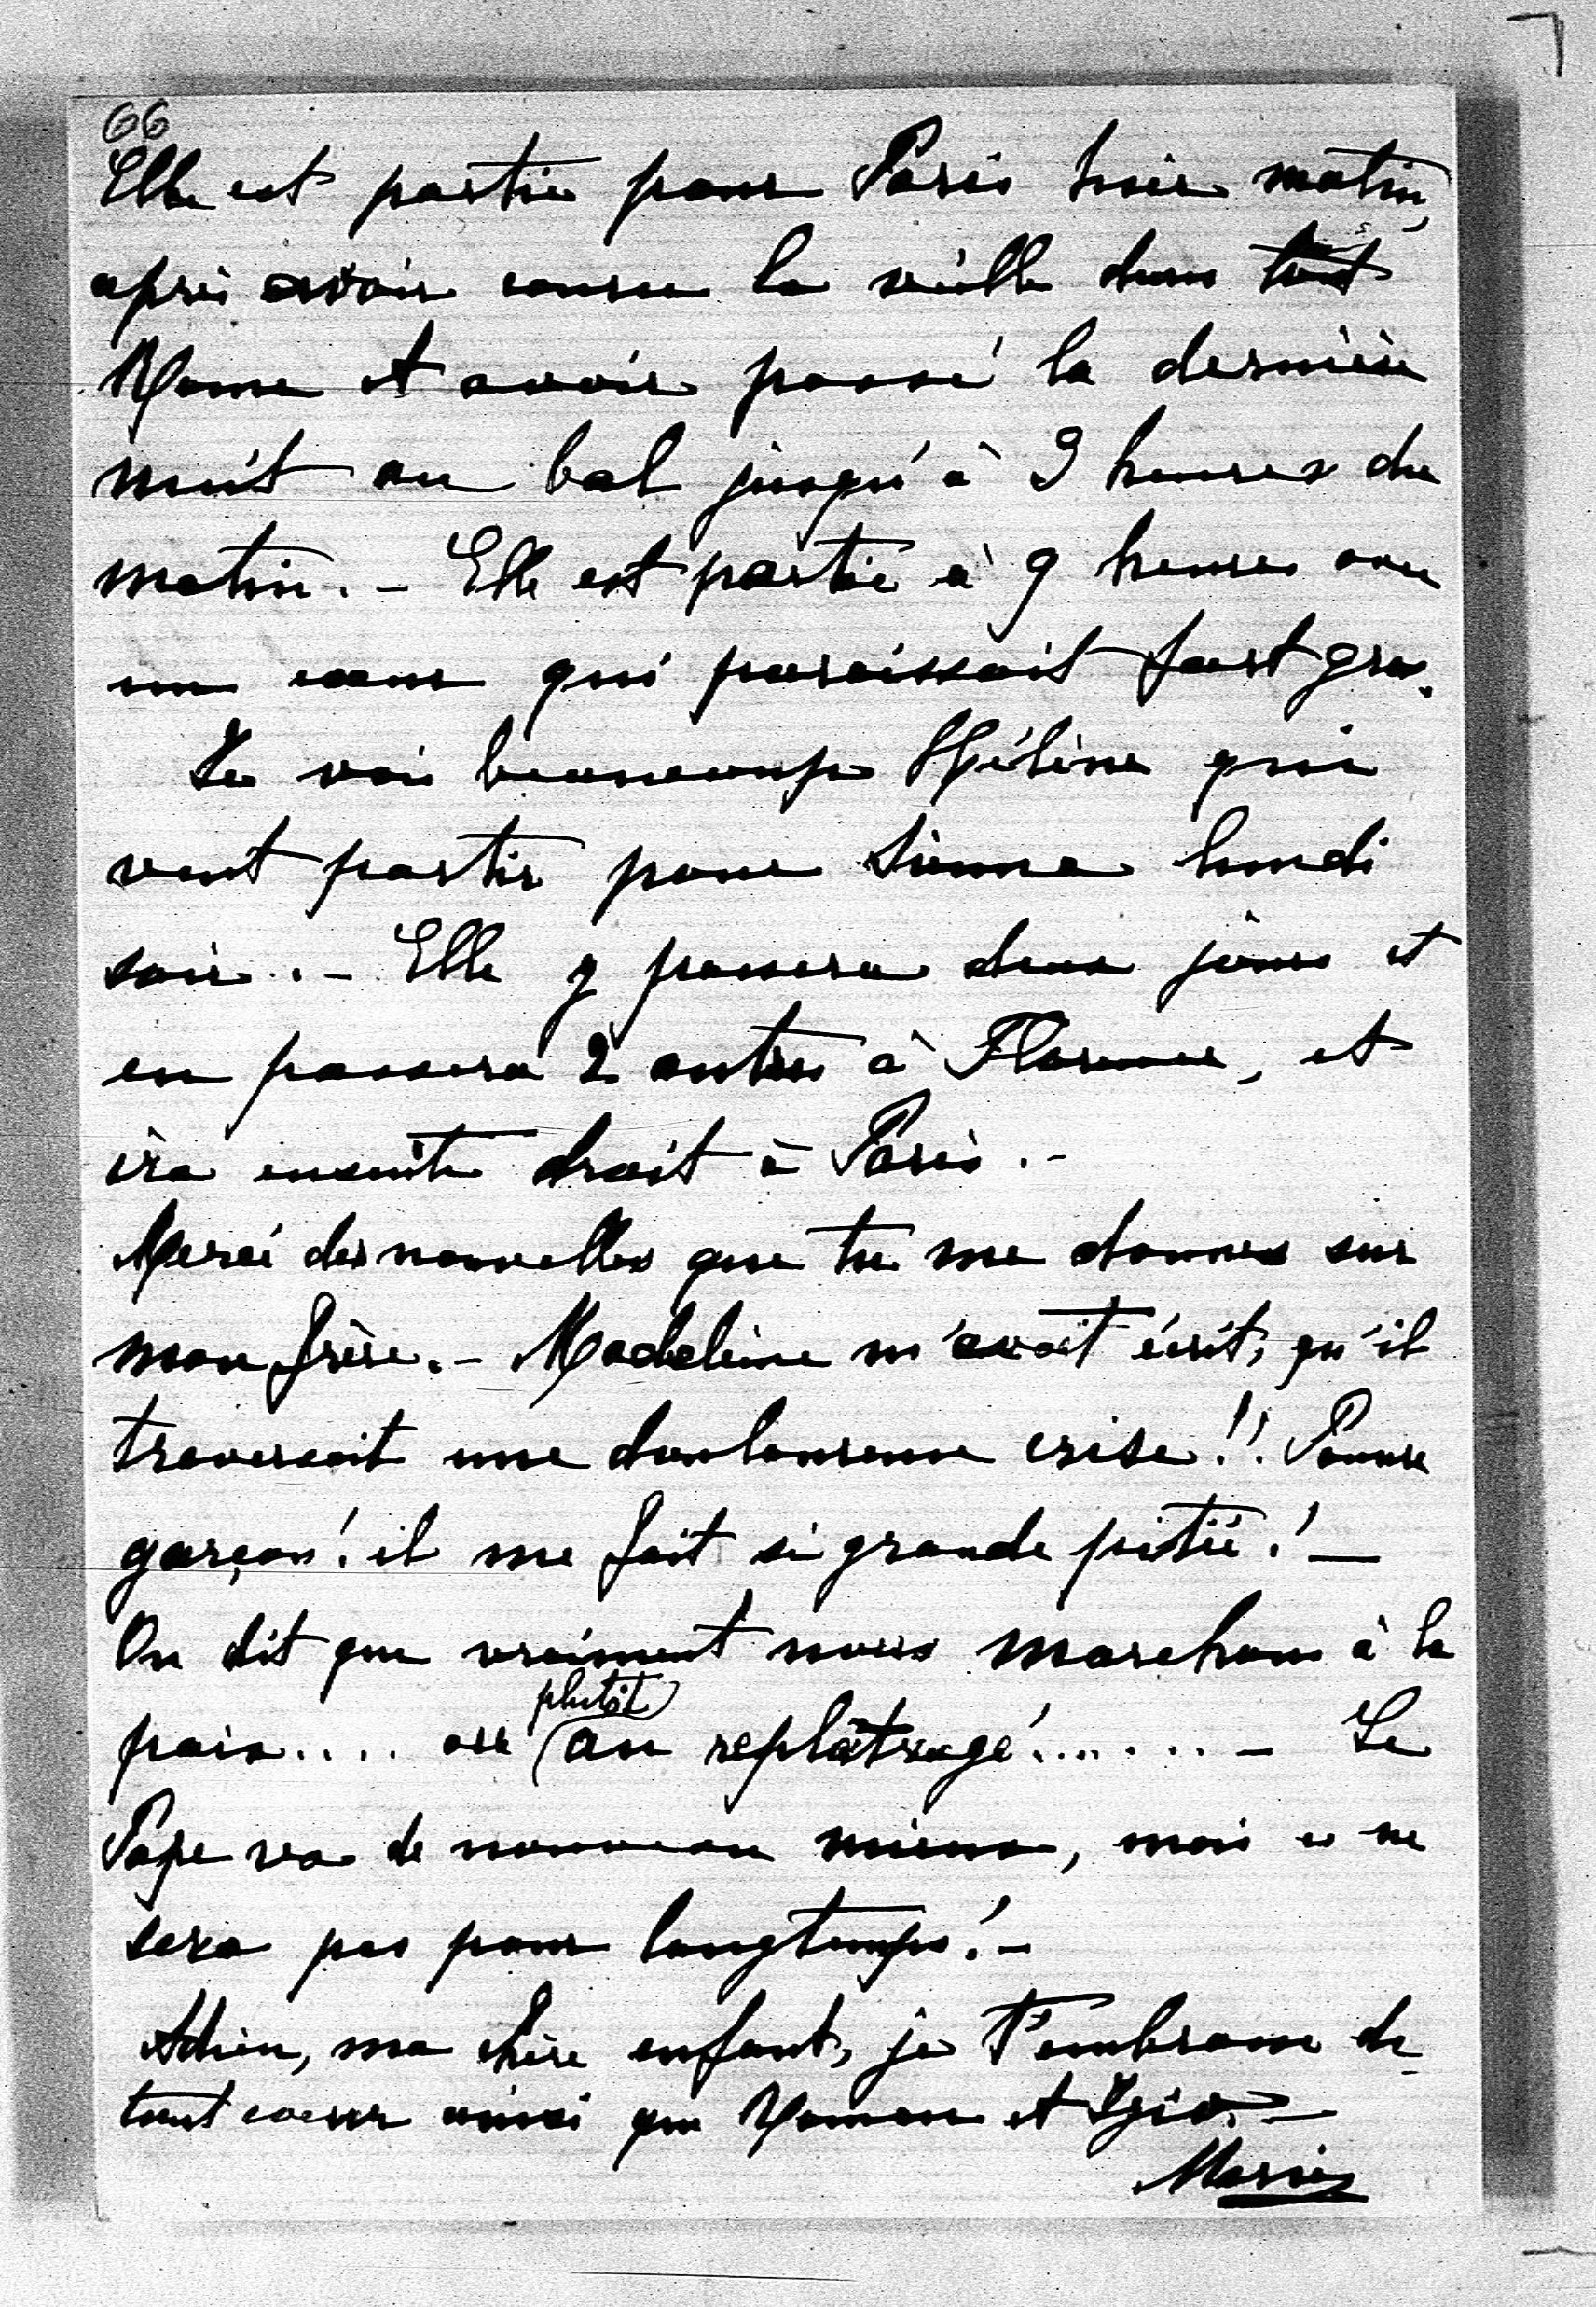 66
Elle est partie pour Paris hier matin,
après avoir couru la veille dans tout
Rome et avoir passé la dernière
nuit au bal jusqu'à 3 heures du
matin. - Elle est partie à 9 heures avec
un cœur qui paraissait fort gros.
Je vois beaucoup Hélène qui
veut partir pour Sienne lundi
soir. - Elle y passera deux jours et
en passera 2 autres à Florence, et
ira ensuite droit à Paris. -
Merci des nouvelles que tu me donnes sur
mon frère. - Madeleine m'avait écrit, qu'il
traversait une douloureuse crise!! Pauvre
garçon! il me fait si grande pitié! —
On dit que vraiment nous marchons à la
plutôt
paix.... ou au replâtrage!....... - Le
Pape va de nouveau mieux, mais ce ne
sera pas pour longtemps! -
Adieu, ma chère enfant, je t'embrasse de
tout cœur ainsi que Roman et —
Marie